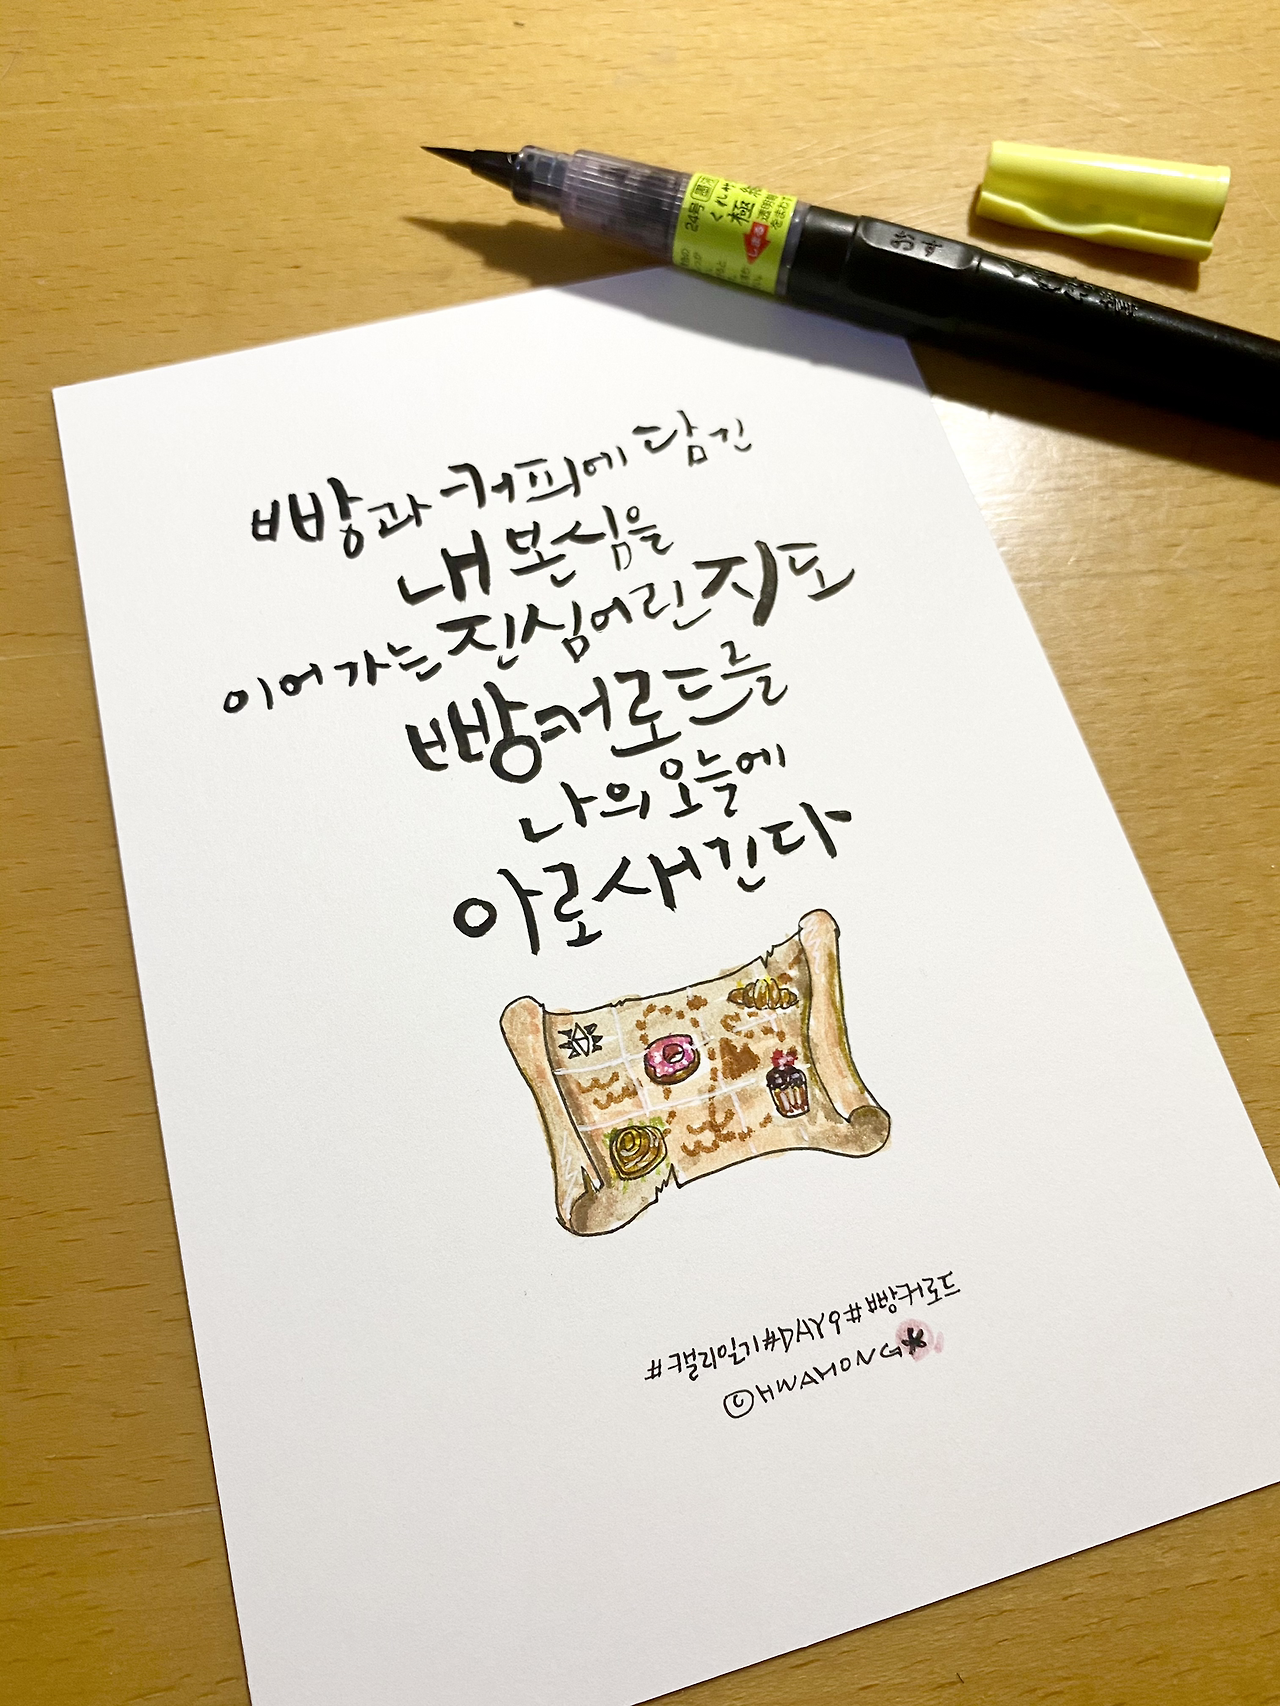 24号
くれ竹
極細
빵과 커피에 담긴
내 본심을
이어가는 진심어린 지도
빵커로드를
나의 오늘에
아로새긴다
#캘리일기#DAY9#빵커로드
©HWAHONG*